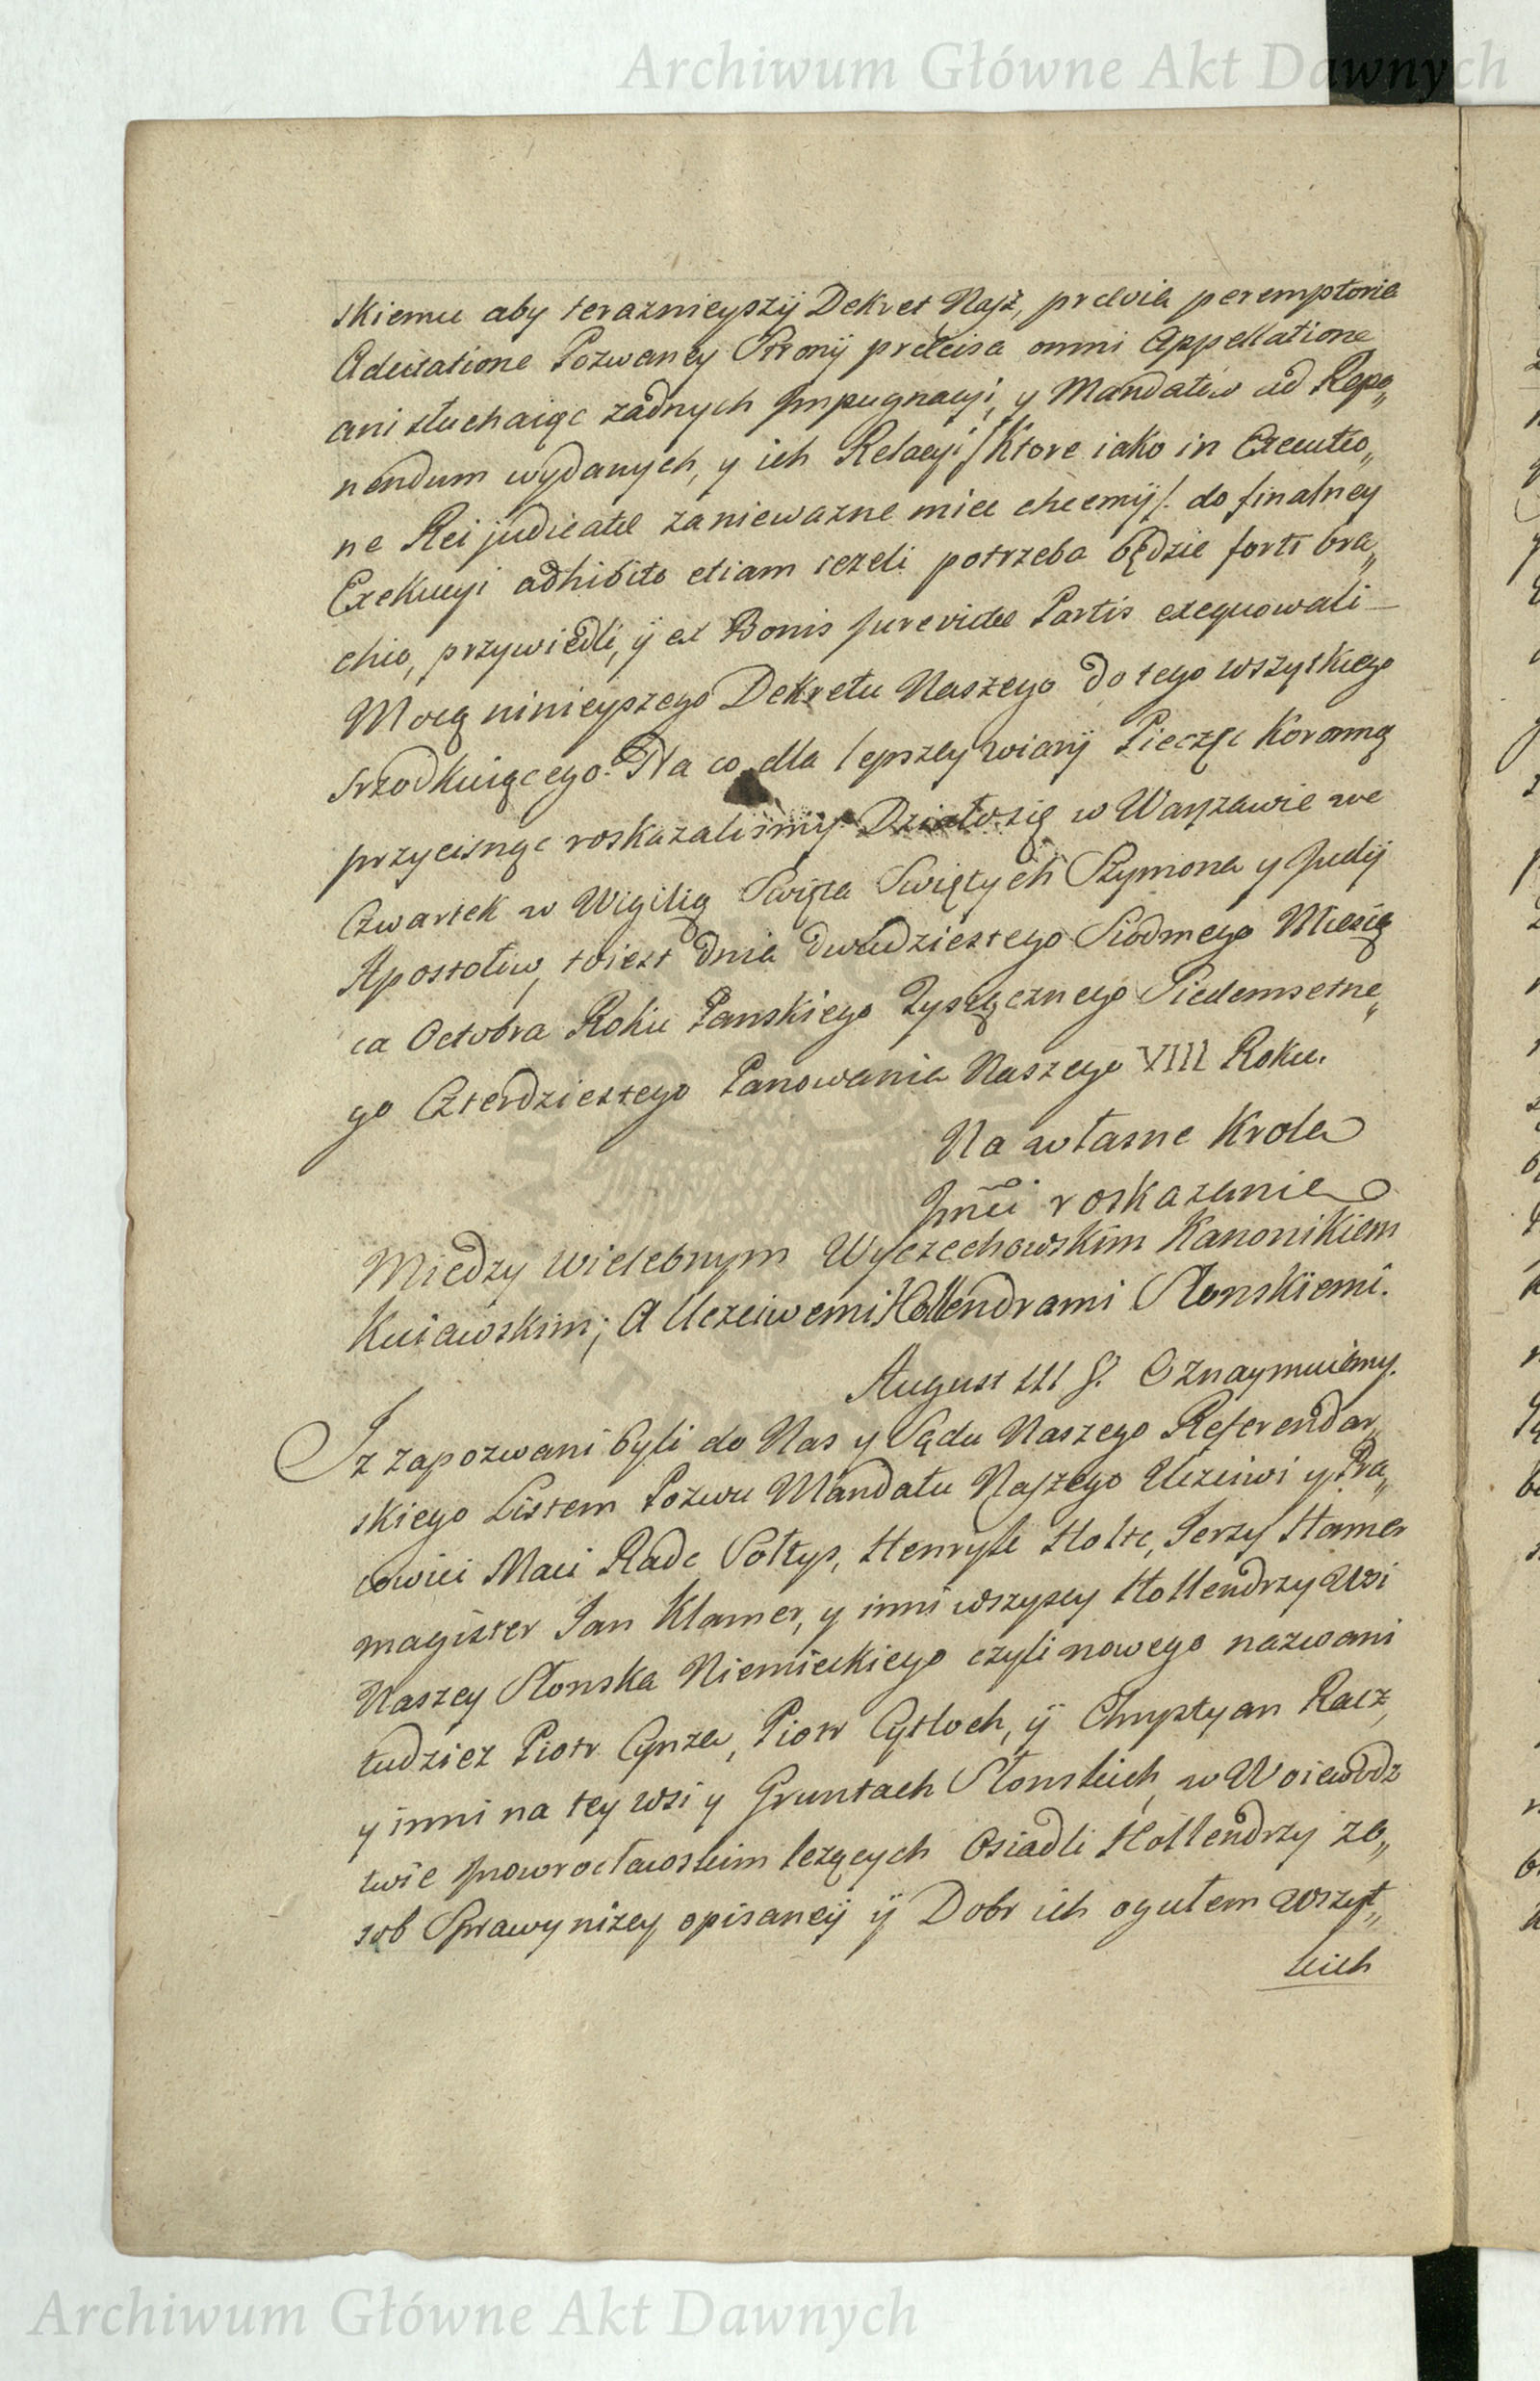 Archiwum Główne Akt Dawnych
skiemu aby teraznieyszÿ Dekret Nasz, prævia peremptoria
Adcitatione Pozwaney Stronÿ præcisa omni Appellatione
ani słuchaiąc żadnych Impugnacyi, y Mandatów ad Repo„
nendum wydanych, y ich Relacyi /Ktore iako in Executio„
ne Rei judicatæ zaniewazne miec chcemÿ/. do finalney
Exekucyi adhibito etiam iezeli potrzeba będzie forti bra„
chio, przywiedli, ÿ ex Bonis Jurevictæ Partis exequowali —
Mocą ninieyszego Dekretu Naszego do tego wszytkiego
srzodkuiącego. Na co dla lepszey wiarÿ Pieczęc Koronną
przycisnąc roskazalismÿ. Działo się w Warszawie we
Czwartek w Wigilią Swięta Swiętych Szymona y Judÿ
Apostołow, toiest dnia dwudziestego Siodmego Miesią
ca Octobra Roku Panskiego Tysiącznego Siedemsetne„
go Czterdziestego Panowania Naszego VIII Roku.
Na własne Krola
Jmci roskazanie
Miedzy Wielebnym Wyczechowskim Kanonikiem
Kuiawskim; A Uczciwemi Hollendrami Słonskiemi.
August III S. Oznaymuiemy.
Iz zapozwani byli do Nas y Sądu Naszego Referendar„
skiego Listem Pozwu Mandatu Naszego Uczciwi y Pra„
cowici Maci Radc Sołtys, Henryk Holtc, Jerzy Hamer
magister Jan Klamer, y inni wszyscy Hollendrzy Wsi
Naszey Słonska Niemieckiego czyli nowego nazwani
tudziez Piotr Cynza, Piotr Cytloch, ÿ Chrystyan Racz,
y inni na tey wsi y Gruntach Słonskich, w Woiewodz
twie Inowrocławskim lezących Osiadli Hollendrzy ze„
sob Sprawy nizey opisaneÿ ÿ Dobr ich ogułem wszyt„
kich
Archiwum Główne Akt Dawnych